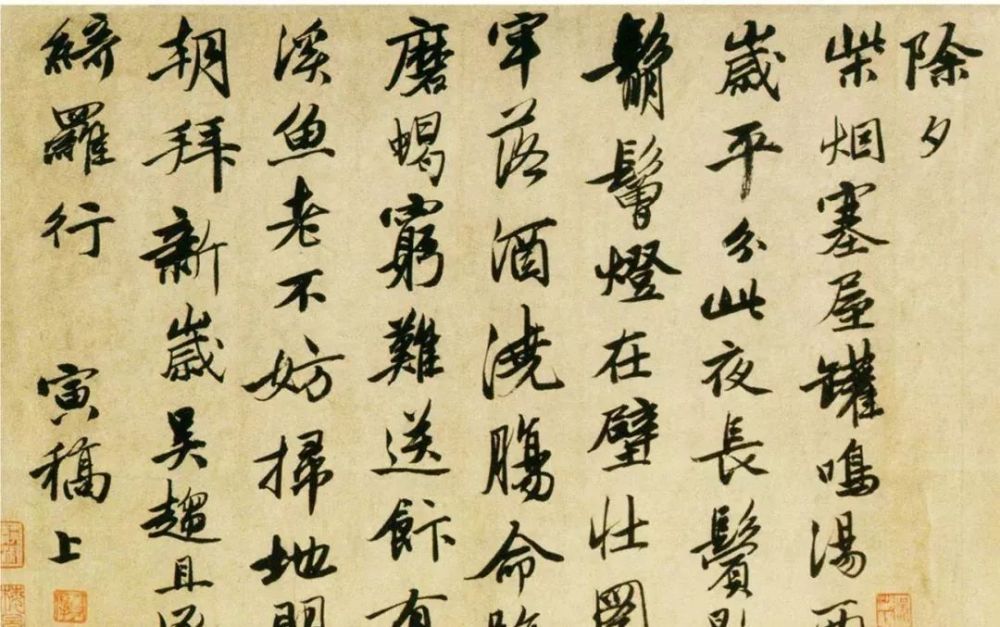 除夕
柴烟塞屋罐鳴湯兩
歲平分此夜長鬢
鬅鬙燈在壁壯圖
牢落酒澆腸命
磨蝎窮難送飰有
溪魚老不妨掃地
朝拜新歲吳趨且
綺羅行 寅稿上